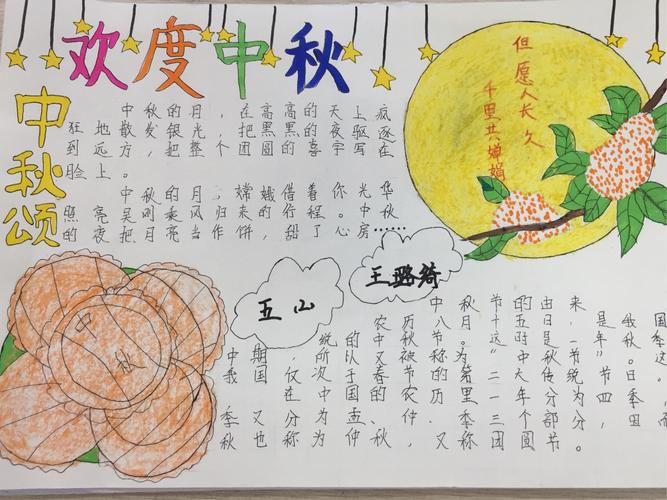 欢度中秋
中秋颂
中秋的月，在高高的天上疯
狂地散发银光，把黑黑的夜驱逐
到远方，把整个团圆的喜字写在
脸上。
中秋的月，嫦娥借着你光华
照亮吴刚乘风归来的行程。中秋
的夜把月亮当作饼，甜了心房……
但愿人长久
千里共婵娟
五山
王璐绮
中秋
中秋节的由来，
农历八月十五日是我国
统的中秋节。这时是一年秋季
中期，所以又被称为"中秋"节。这
我国仅次于春节的第二大传统节日，而
在中国的农历里，一年分为四季，
季又分为孟、仲、季三个部分。因
秋也称为仲秋，又称团圆节。